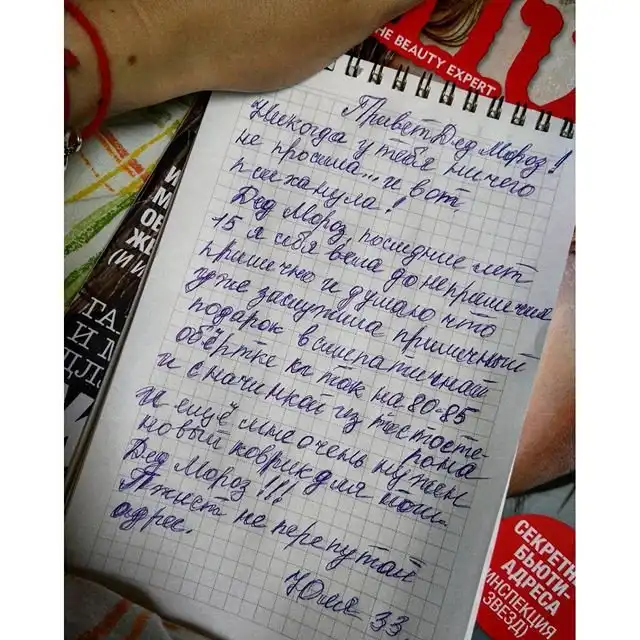 THE BEAUTY EXPERT
Привет Дед Мороз!
Никогда у тебя ничего
не просила... и вот,
психанула!
Дед Мороз, последние лет
15 я себя вела до неприличия
прилично и думаю что
уже заслужила приличный
подарок в симпатичной
обёртке кг так на 80-85
и с начинкой из тестосте-
рона
и ещё мне очень нужен
новый коврик для йоги.
Дед Мороз!!!
Пжист не перепутай
адрес.
Юля 33
СЕКРЕТН
БЬЮТИ-
АДРЕСА
ИНСПЕКЦИЯ
ЗВЕЗД)